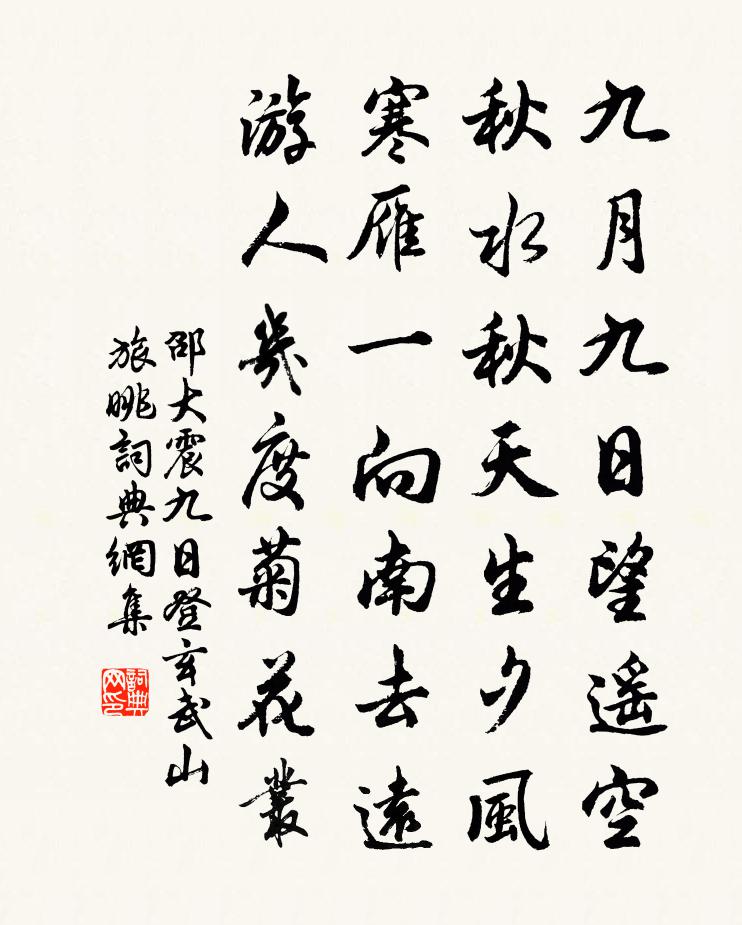 九月九日望遙空
秋水秋天生夕風
寒雁一向南去遠
游人幾度菊花叢
邵大震九日登玄武山
旅眺詞典網集
詞典网印